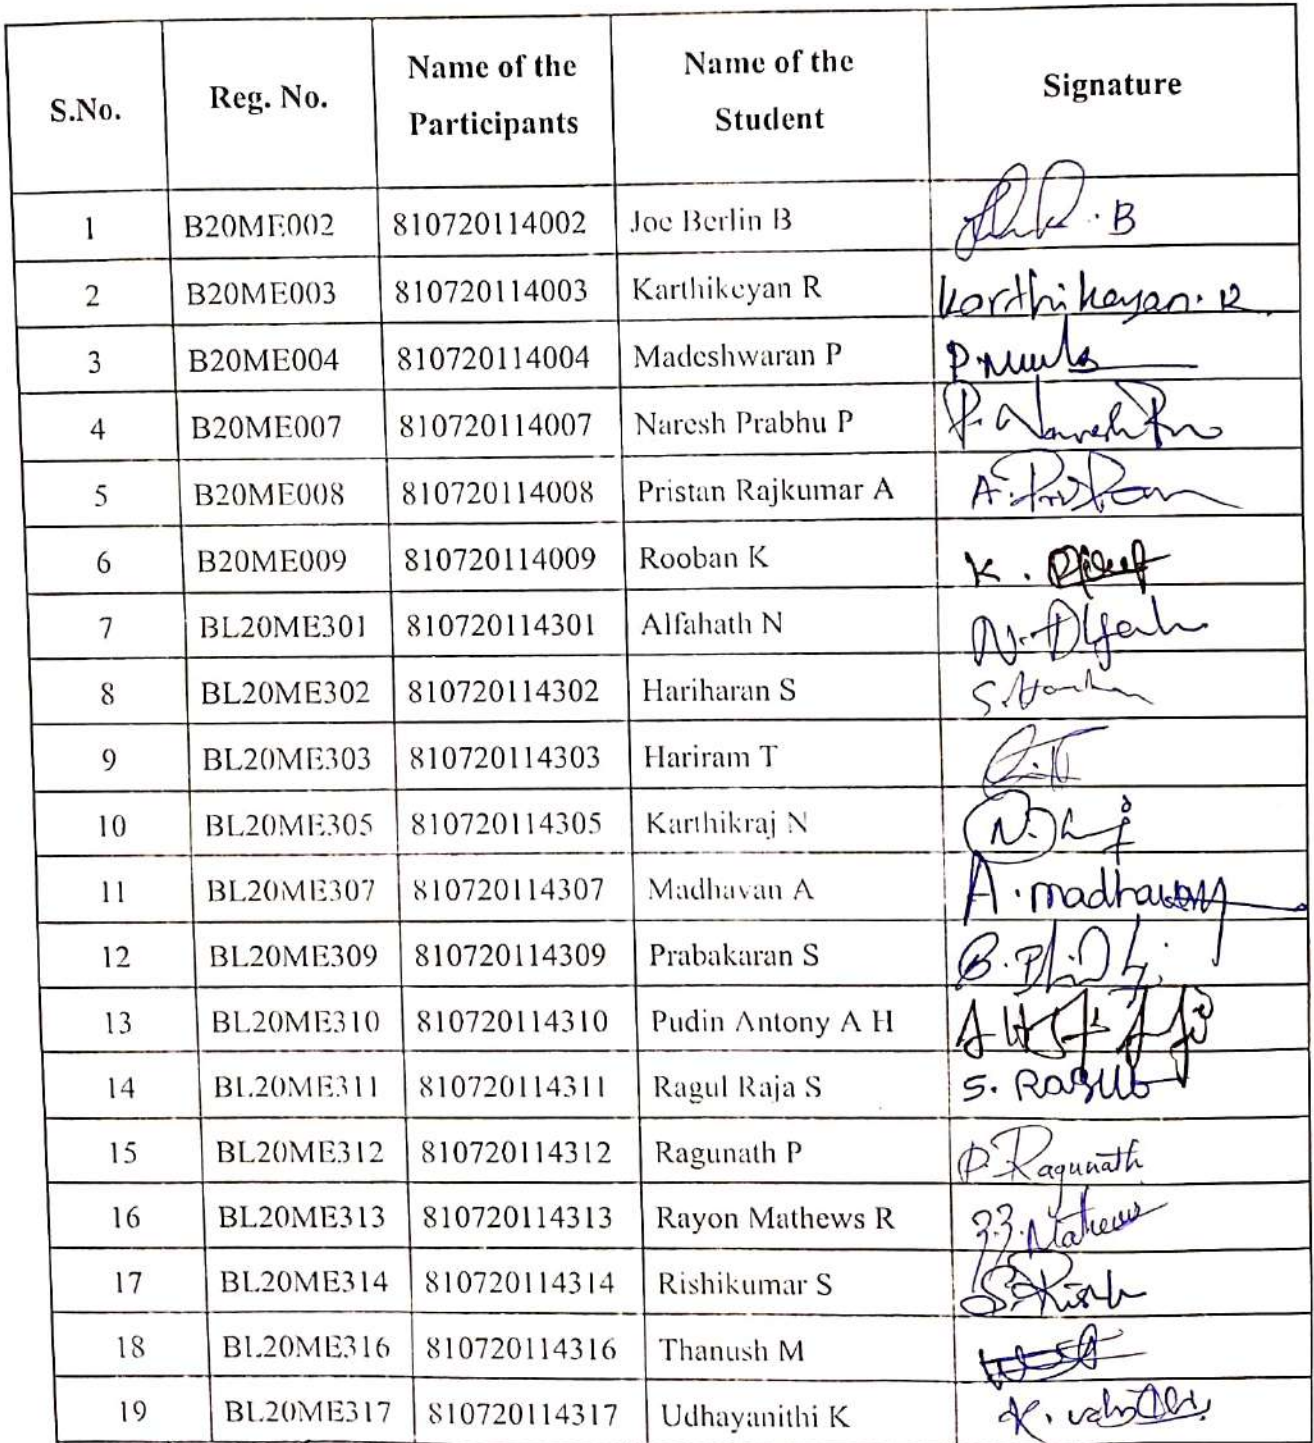 S.No. Reg. No. Name of the Participants Name of the Student Signature
1 B20ME002 810720114002 Joe Berlin B B
2 B20ME003 810720114003 Karthikeyan R Karthikeyan. R
3 B20ME004 810720114004 Madeshwaran P
4 B20ME007 810720114007 Naresh Prabhu P
5 B20ME008 810720114008 Pristan Rajkumar A
6 B20ME009 810720114009 Rooban K K.
7 BL20ME301 810720114301 Alfahath N
8 BL20ME302 810720114302 Hariharan S
9 BL20ME303 810720114303 Hariram T
10 BL20ME305 810720114305 Karthikraj N
11 BL20ME307 810720114307 Madhavan A A. madhavan
12 BL20ME309 810720114309 Prabakaran S
13 BL20ME310 810720114310 Pudin Antony A H
14 BL20ME311 810720114311 Ragul Raja S S. Ragul
15 BL20ME312 810720114312 Ragunath P P. Ragunath
16 BL20ME313 810720114313 Rayon Mathews R
17 BL20ME314 810720114314 Rishikumar S
18 BL20ME316 810720114316 Thanush M
19 BL20ME317 810720114317 Udhayanithi K